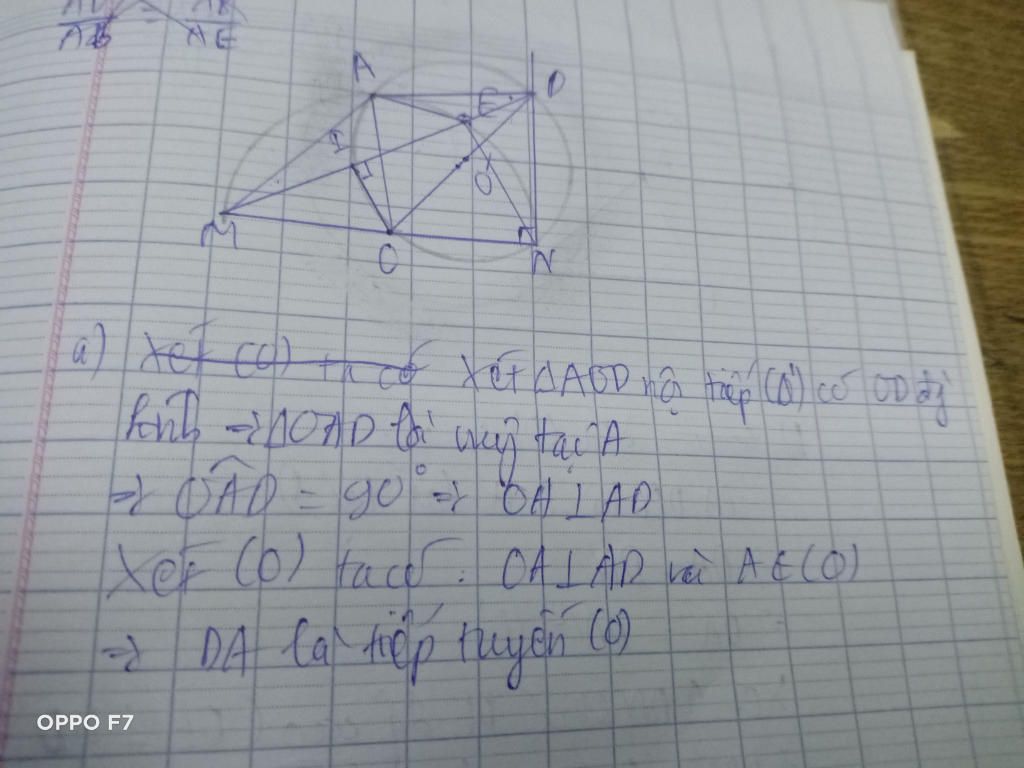 AE
A
D
E
I
O'
M
O
N
a) Xét (O) ta có Xét ΔAOD nội tiếp (O') có OD đg
kính => ΔOAD là vug tại A
=> OAD = 90° => OA⊥AD
Xét (O) ta có : OA⊥AD và A∈(O)
=> DA là tiếp tuyến (O)
OPPO F7